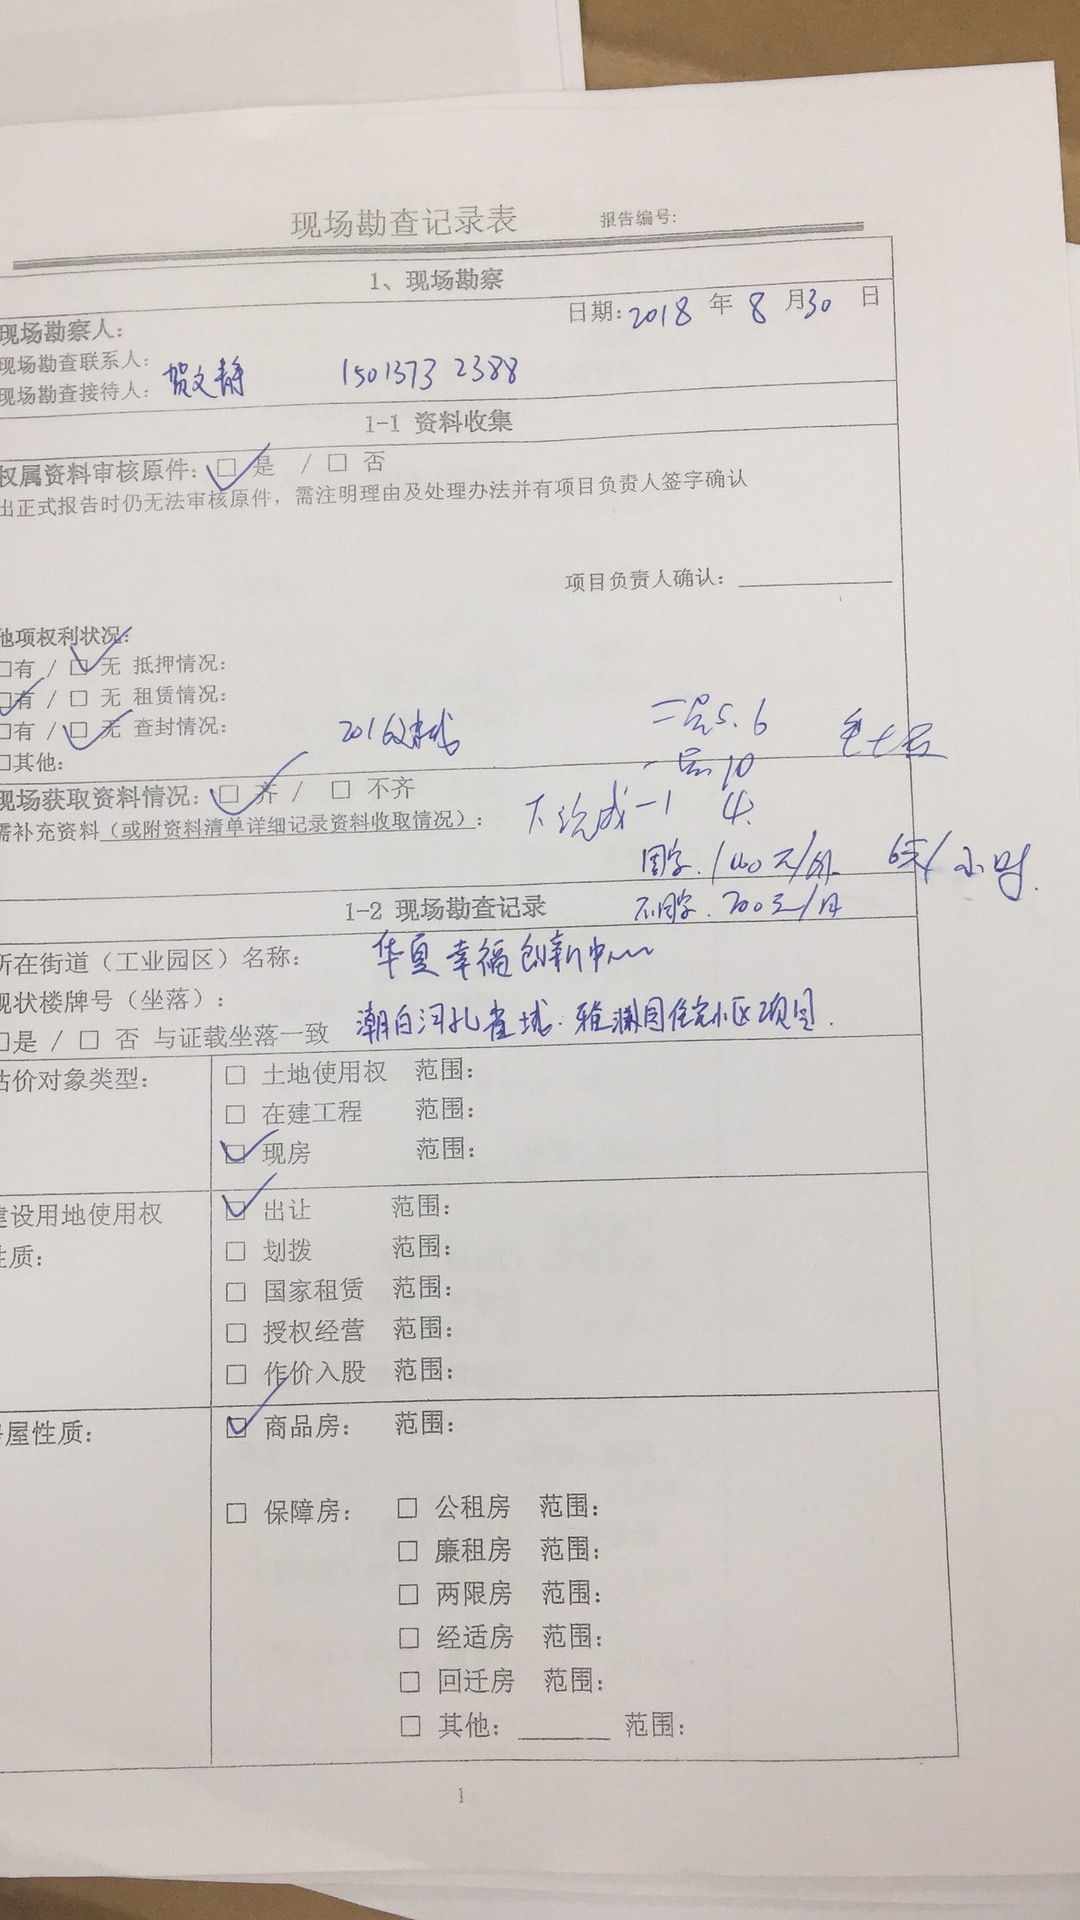 现场勘查记录表 报告编号:
1、现场勘察
现场勘察人: 日期: 2018 年 8 月 30 日
现场勘查联系人:
现场勘查接待人: 贺文静 15013732388
1-1 资料收集
权属资料审核原件: □ 是 / □ 否
出正式报告时仍无法审核原件，需注明理由及处理办法并有项目负责人签字确认
项目负责人确认:
他项权利状况:
□有 / □ 无 抵押情况:
□有 / □ 无 租赁情况:
□有 / □ 无 查封情况: 2016 二层5.6
□其他: 一层 10
现场获取资料情况: □ 齐 / □ 不齐
需补充资料(或附资料清单详细记录资料收取情况): 下 -1 4.
固定 元/月 6元/小时.
1-2 现场勘查记录 不固定. 200元/月
所在街道（工业园区）名称: 华夏幸福创新中心
现状楼牌号（坐落）:
□是 / □ 否 与证载坐落一致 潮白河孔雀城.雅澜园住宅小区项目.
估价对象类型: □ 土地使用权 范围:
□ 在建工程 范围:
□ 现房 范围:
建设用地使用权 □ 出让 范围:
性质: □ 划拨 范围:
□ 国家租赁 范围:
□ 授权经营 范围:
□ 作价入股 范围:
房屋性质: □ 商品房: 范围:
□ 保障房: □ 公租房 范围:
□ 廉租房 范围:
□ 两限房 范围:
□ 经适房 范围:
□ 回迁房 范围:
□ 其他: 范围:
1